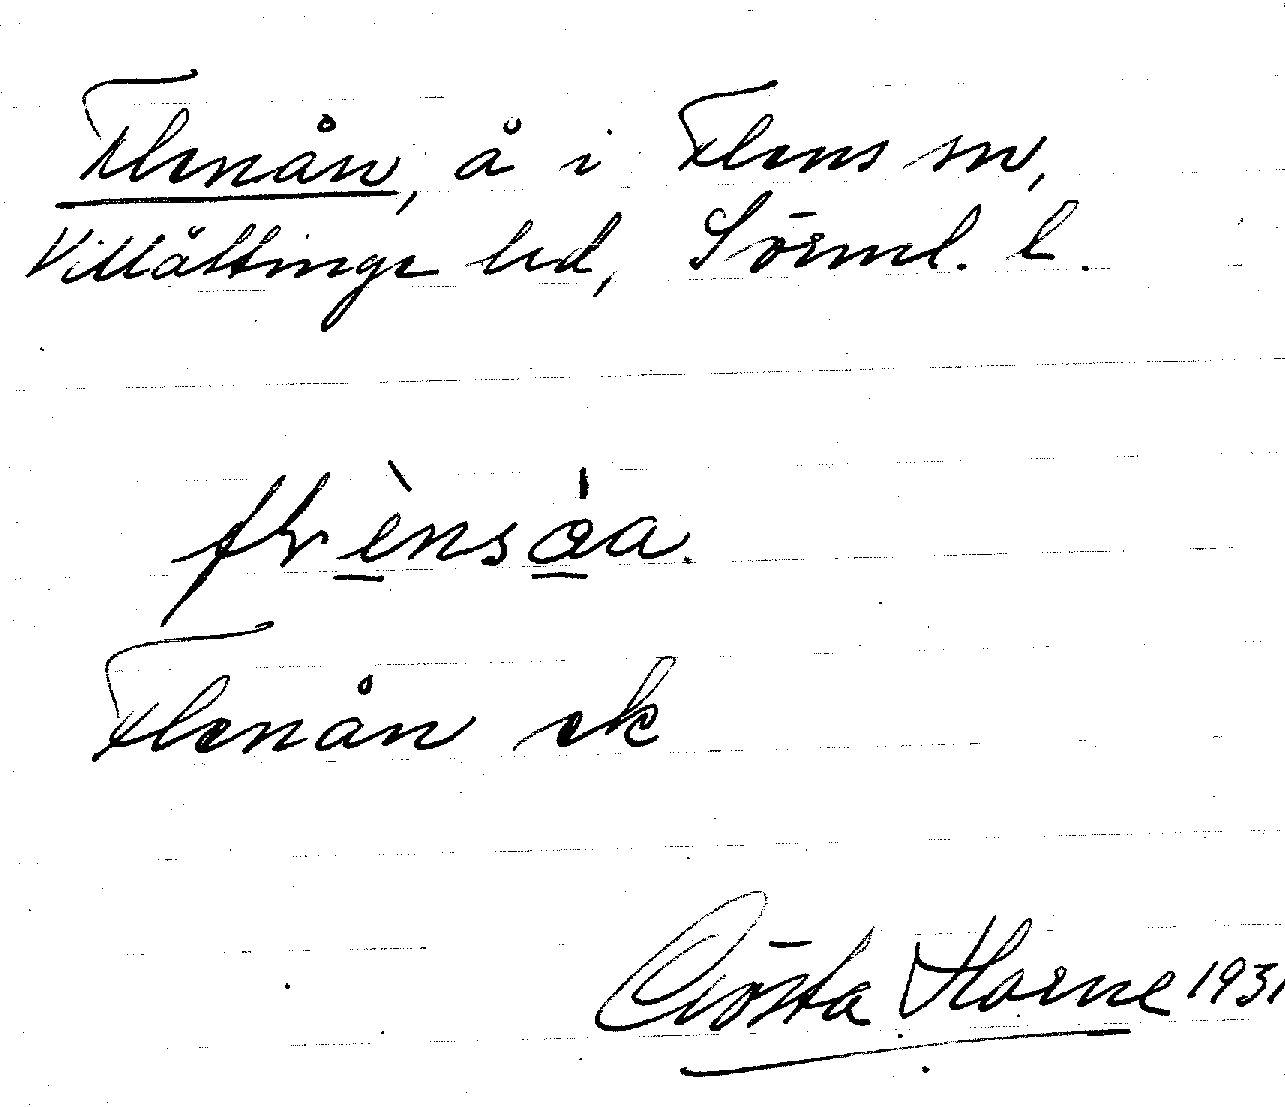 Flenån, å i Flens sn,
Villåttinge hd, Sörml. l.
Flenån ek
Gösta Horne 1931